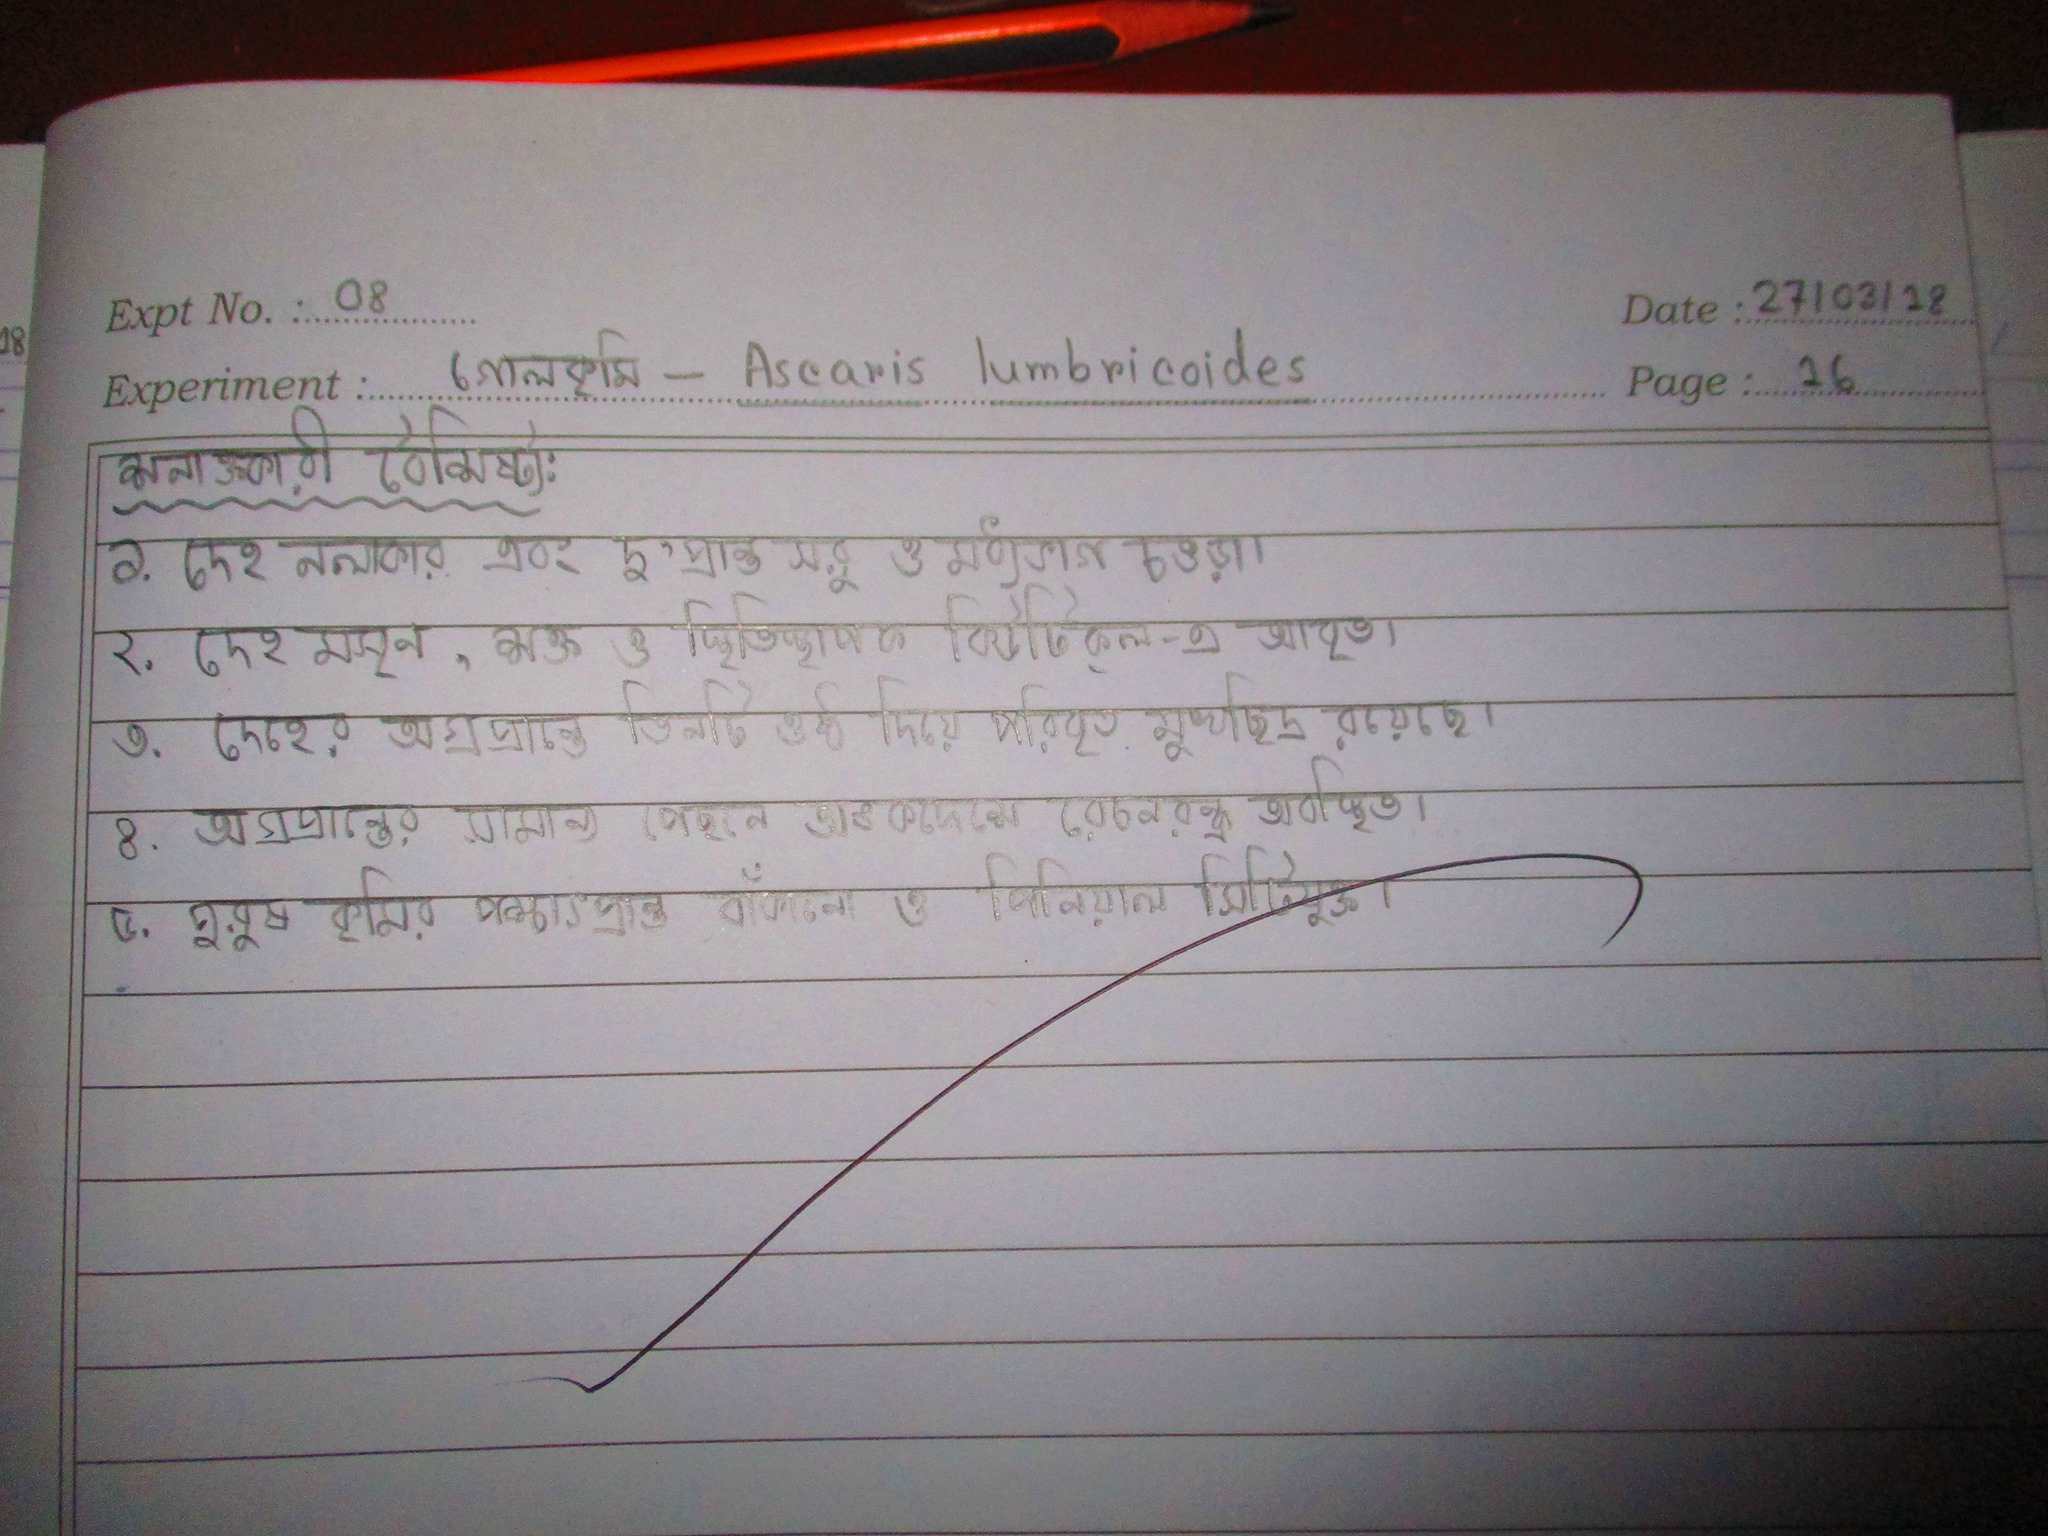 Expt No. : 08
Date : 27/03/18
Experiment : গোলকৃমি – Ascaris lumbricoides
Page : 16
শনাক্তকারী বৈশিষ্ট্য:
১. দেহ নলাকার এবং দু'প্রান্ত সরু ও মধ্যভাগ চওড়া।
২. দেহ মসৃন, শক্ত ও স্থিতিস্থাপক কিউটিকল-এ আবৃত।
৩. দেহের অগ্রপ্রান্তে তিনটি ওষ্ঠ দিয়ে পরিবৃত মুখছিদ্র রয়েছে।
৪. অগ্রপ্রান্তের সামান্য পেছনে অঙ্কদেশে রেচনরন্ধ্র অবস্থিত।
৫. পুরুষ কৃমির পশ্চাৎপ্রান্ত বাঁকানো ও পিনিয়াল সিটিযুক্ত।
18